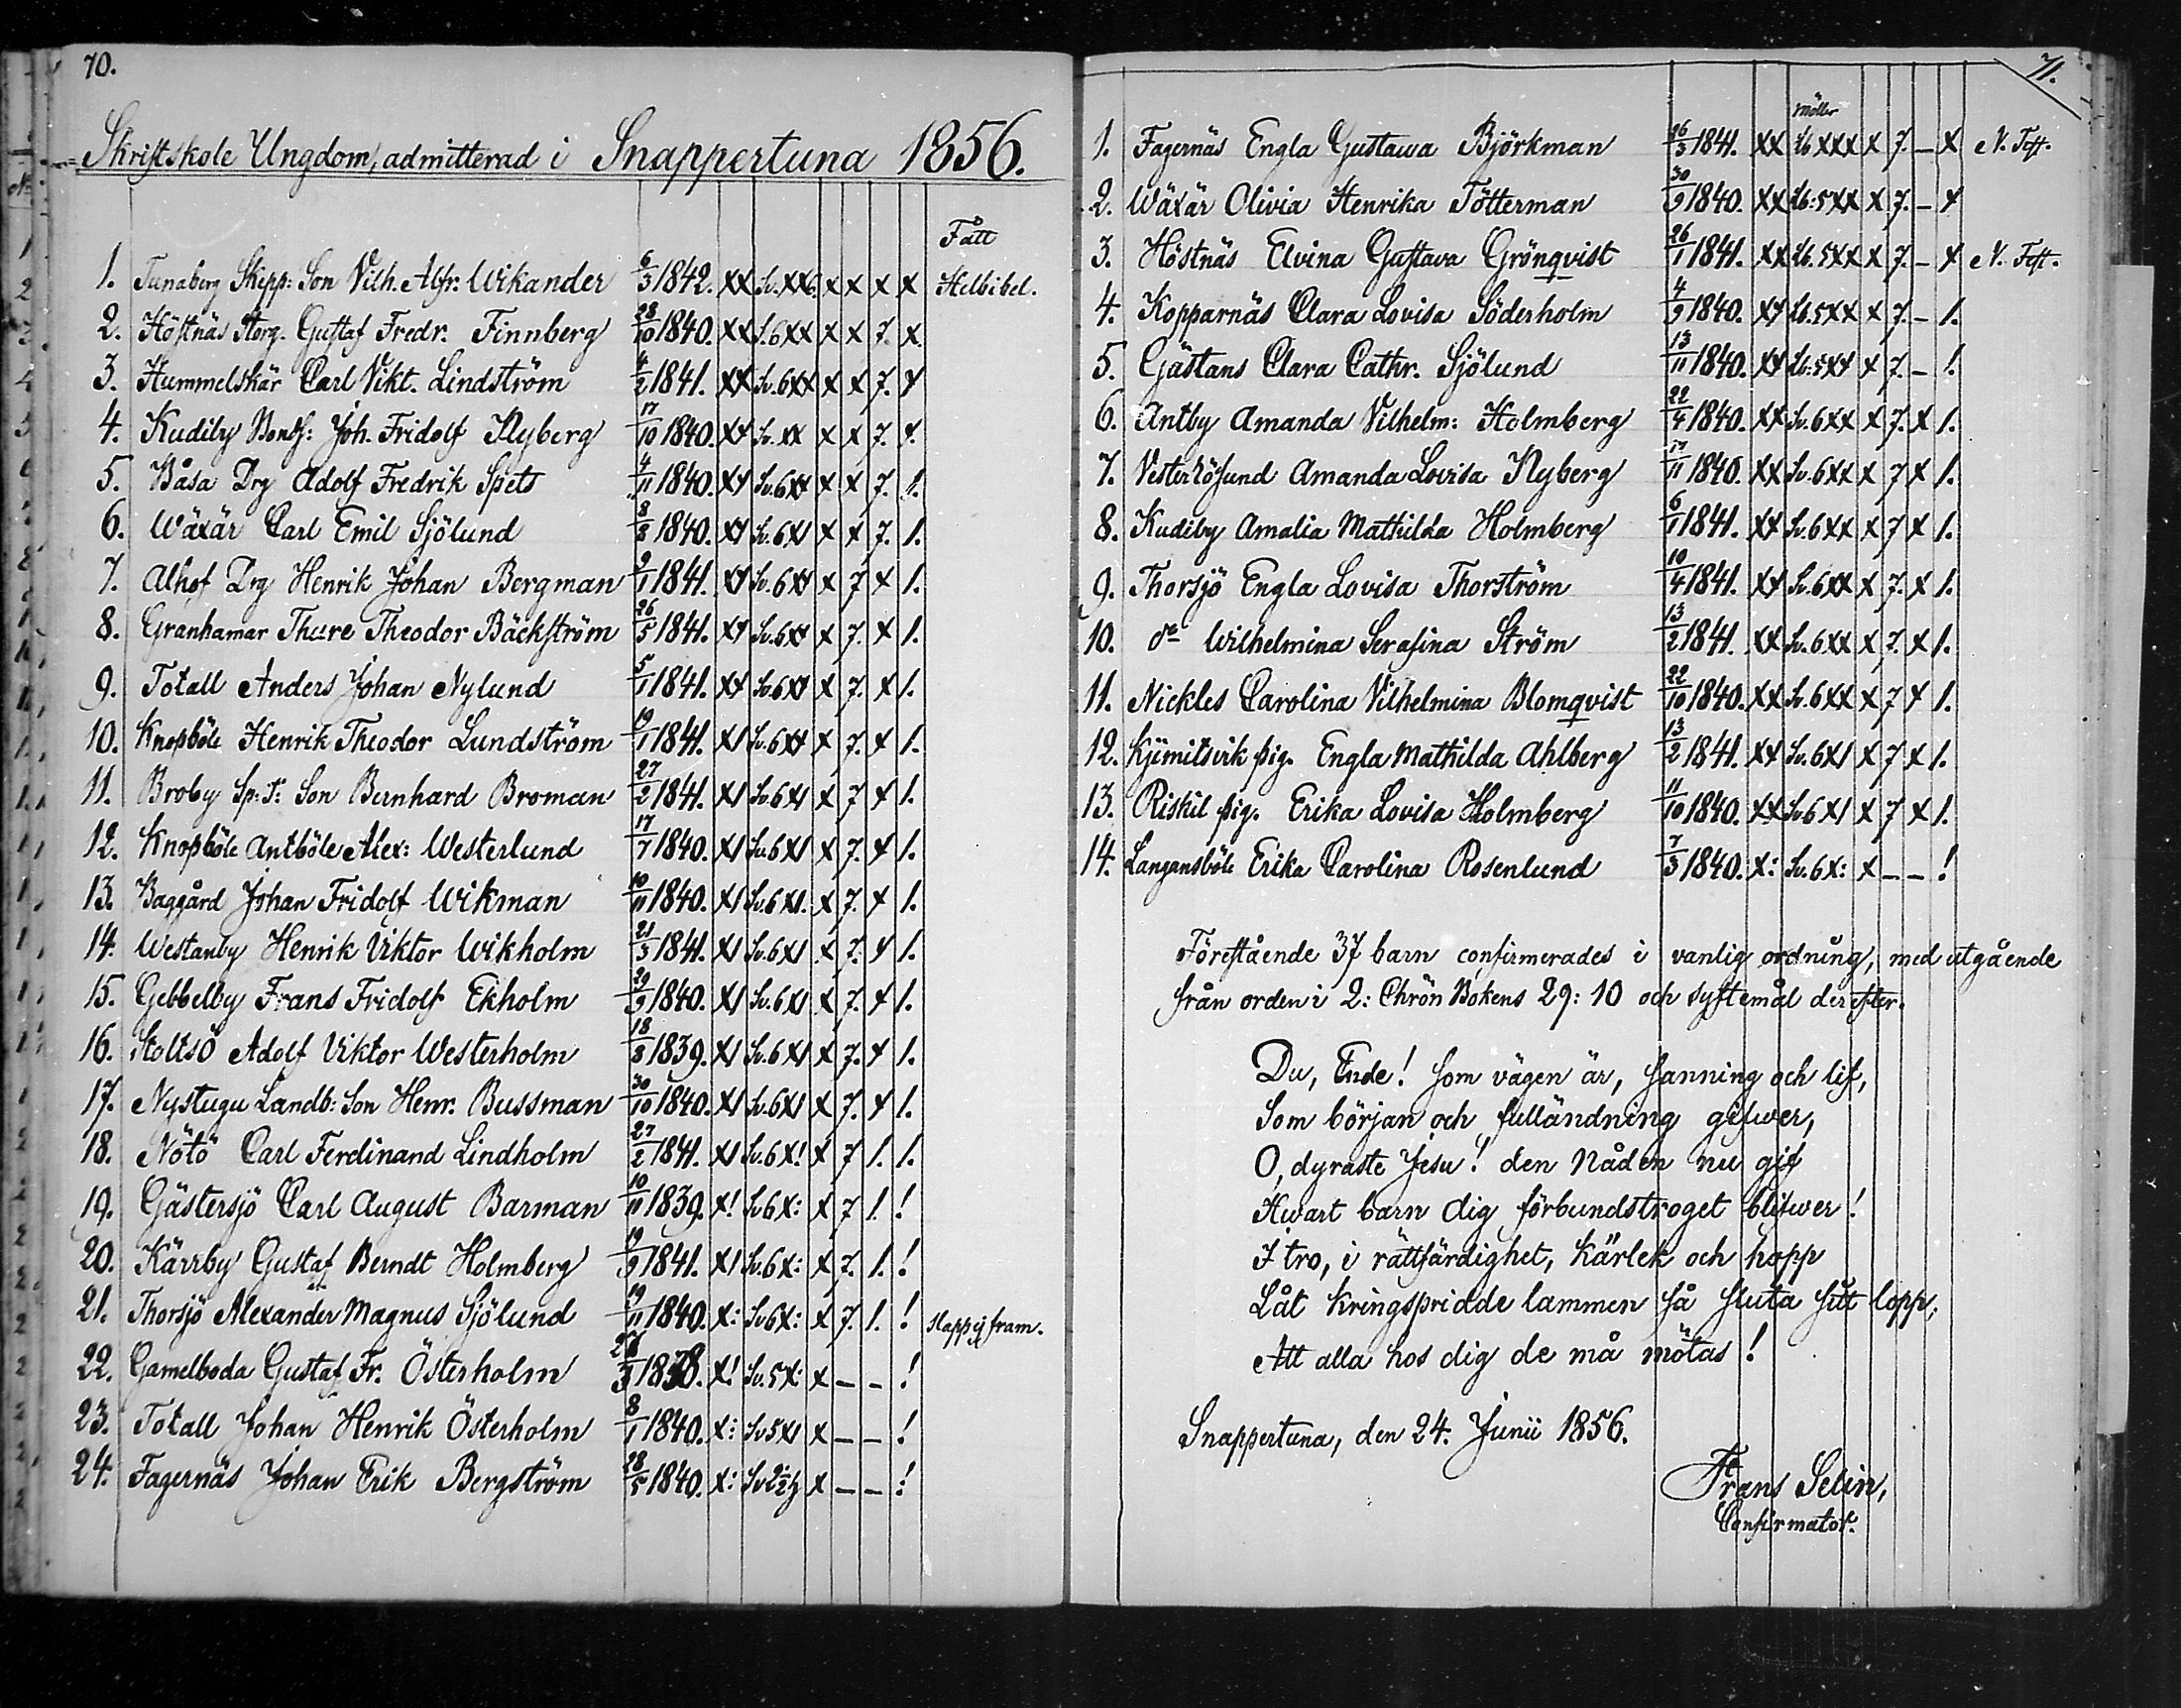 70.
Skriftskole Ungdom, admitterad i Snappertuna 1856.
Fått
1. Tunaberg Skepp: Son Vilh. Alfr. Wikander 6/3 1842. XX Sv. XX6. X X X X Helbibel.
2. Höstnäs Storg. Gustaf Fredr. Finnberg 28/10 1840. XX S.6XX X X 7. X.
3. Hummelskär Carl Vikt. Lindström 4/2 1841. XX Sv.6XX X X 7. X
4. Kudiby Bonds: Joh. Fridolf Nyberg 17/10 1840. XX Sv. XX X X 7. X.
5. Båsa Drg Adolf Fredrik Spets 4/11 1840. XX Sv.6XX X X 7. 1.
6. Wäxär Carl Emil Sjölund 8/8 1840. XX Sv.6X1 X X 7. 1.
7. Alhof Drg Henrik Johan Bergman 9/1 1841. XX Sv.6XX X 7 X 1.
8. Granhamar Thure Theodor Bäckström 26/5 1841. XX Sv.6XX X 7. X 1.
9. Totall Anders Johan Nylund 5/1 1841. XX Sv.6XX X 7. X 1.
10. Knopböle Henrik Theodor Lundström 19/1 1841. X1 Sv.6XX X 7. X 1.
11. Broby Sp: S: Son Bernhard Broman 27/2 1841. X1 Sv.6X1 X 7 X 1.
12. Knopböle Antböle Alex: Westerlund 17/7 1840. X1 Sv.6X1 X 7. X 1.
13. Baggård Johan Fridolf Wikman 10/11 1840. X1 Sv.6X1. X 7. X 1.
14. Westanby Henrik Viktor Wikholm 21/3 1841. X1 Sv.6X1 X 7. X 1.
15. Gebbelby Frans Fridolf Ekholm 29/9 1840. X1 Sv.6X1 X 7. X 1.
16. Stoltsö Adolf Viktor Westerholm 18/8 1839. X1 Sv.6X1 X 7. X 1.
17. Nystugu Landb: Son Henr. Bussman 30/10 1840. X1 Sv.6X1 X 7. X 1.
18. Nötö Carl Ferdinand Lindholm 27/2 1841. X1 Sv.6X! X 7 1. 1.
19. Gästersjö Carl August Barman 10/11 1839. X! Sv6X: X 7 1. !
20. Kärrby Gustaf Berndt Holmberg 19/9 1841. X1 Sv.6X: X 7. 1. !
21. Thorsjö Alexander Magnus Sjölund 19/11 1840. X: Sv6X: X 7. 1. ! slapp ej fram.
22. Gamelboda Gustaf Fr. Österholm 1838. X! Sv.5X: X — — !
23. Totall Johan Henrik Österholm 8/1 1840. X: Sv5X1 X — — !
24. Fagernäs Johan Erik Bergström 28/5 1840. X: X — — !
71.
Möller
1. Fagernäs Engla Gustawa Björkman 26/3 1841. XX XXX X 7. — X N. Test.
2. Wäxär Olivia Henrika Tötterman 30/9 1840. XX 5XX X 7. — X
3. Höstnäs Elvina Gustava Grönqvist 26/1 1841. XX 5XX X 7. — X N. Test.
4. Kopparnäs Clara Lovisa Söderholm 4/9 1840. XX 5XX X 7. — 1.
5. Gästans Clara Cathr. Sjölund 13/11 1840. XX 5XX X 7. — !
6. Antby Amanda Vilhelm: Holmberg 22/4 1840. XX Sv.6XX X 7. X 1.
7. Vesterhösund Amanda Lovisa Nyberg 17/11 1840. XX Sv.6XX X 7 X 1.
8. Kudiby Amalia Mathilda Holmberg 6/1 1841. XX Sv.6XX X 7 X 1.
9. Thorsjö Engla Lovisa Thorström 10/4 1841. XX Sv.6XX X 7. X 1.
10. do Wilhelmina Serafina Ström 13/2 1841. XX Sv.6XX X 7. X 1.
11. Nickles Carolina Vilhelmina Blomqvist 22/10 1840. XX Sv.6XX X 7 X 1.
12. Kjimitsvik pig. Engla Mathilda Ahlberg 13/2 1841. XX Sv.6X1 X 7 X 1.
13. Riskil pig. Erika Lovisa Holmberg 11/10 1840. XX Sv6X1 X 7 X 1.
14. Langansböle Erika Carolina Rosenlund 7/3 1840. X: Sv.6X: X — — !
Förestående 37 barn confirmerades i vanlig ordning, med utgående
från orden i 2: Chrön Bokens 29: 10 och syftemål derefter.
Du, Ende! som vägen är, sanning och lif,
Som början och fulländning gifwer,
O, dyraste Jesu! den Nåden nu gif
Hwart barn dig förbundstroget blifwer!
I tro, i rättfärdighet, kärlek och hopp
Låt kringspridde lammen så sluta sitt lopp,
Att alla hos dig de må mötas!
Snappertuna, den 24. Junii 1856.
Frans Selin,
Confirmator.